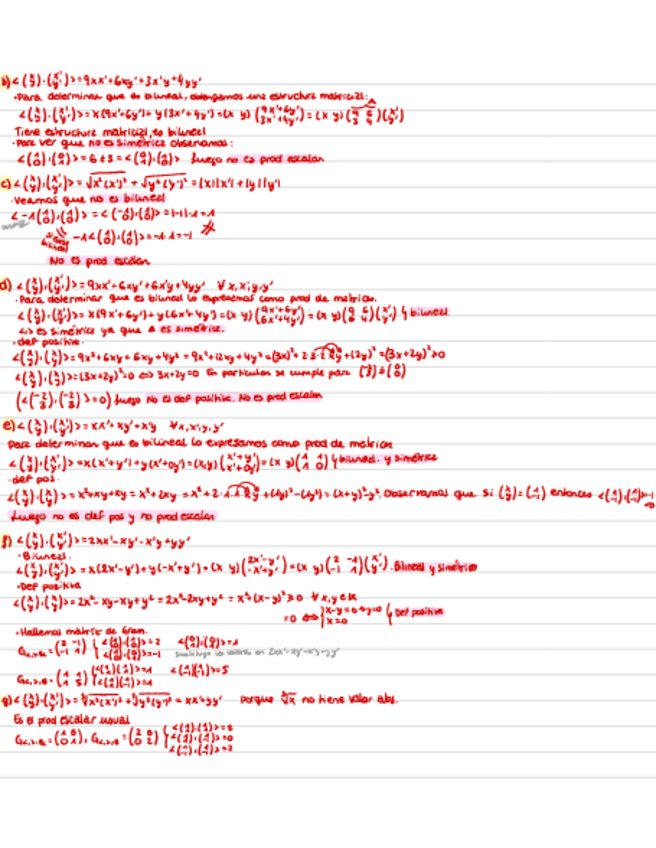 b) <(x y),(x' y')> = 9xx'+6xy'+3x'y+4yy'
·Para determinar que es bilineal, obtengamos una estructura matricial:
<(x y),(x' y')> = x(9x'+6y')+y(3x'+4y') = (x y)(9x'+6y' 3x'+4y') = (x y)(9 6 3 4)(x' y')
Tiene estructura matricial, es bilineal
·Para ver que no es simétrica observamos:
<(1 0),(0 1)> = 6 ≠ 3 = <(0 1),(1 0)> luego no es prod escalar
c) <(x y),(x' y')> = √x²(x')² + √y²(y')² = |x||x'|+|y||y'|
·Veamos que no es bilineal
<-1(1 0),(1 0)> = <(-1 0),(1 0)> = |-1|·1 = 1
-1<(1 0),(1 0)> = -1·1 = -1
No es prod escalar
d) <(x y),(x' y')> = 9xx'+6xy'+6x'y+4yy' ∀x,x',y,y'
·Para determinar que es bilineal lo expresamos como prod de matrices.
<(x y),(x' y')> = x(9x'+6y')+y(6x'+4y') = (x y)(9x'+6y' 6x'+4y') = (x y)(9 6 6 4)(x' y') bilineal
<,> es simétrica ya que A es simétrica.
·def positiva.
<(x y),(x y)> = 9x²+6xy+6xy+4y² = 9x²+12xy+4y² = (3x)²+2·3·2xy+(2y)² = (3x+2y)² ≥ 0
<(x y),(x y)> = (3x+2y)² = 0 ⇔ 3x+2y=0 En particular se cumple para (-2 3) ≠ (0 0)
(<(-2 3),(-2 3)> = 0) luego No es def positiva. No es prod escalar
e) <(x y),(x' y')> = xx'+xy'+x'y ∀x,x',y,y'
Para determinar que es bilineal lo expresamos como prod de matrices
<(x y),(x' y')> = x(x'+y')+y(x'+0y') = (x,y)(x'+y' x'+0y') = (x y)(1 1 1 0) bilineal. y simétrica
·def pos.
<(x y),(x y)> = x²+xy+xy = x²+2xy = x²+2·1·1xy+(1y)²-(1y)² = (x+y)²-y². Observamos que si (x y)=(1 -1) entonces <(1 -1),(1 -1)>=-1 <0
Luego no es def pos y no prod escalar
f) <(x y),(x' y')> = 2xx'-xy'-x'y+yy'
·Bilineal.
<(x y),(x' y')> = x(2x'-y')+y(-x'+y') = (x y)(2x'-y' -x'+y') = (x y)(2 -1 -1 1)(x' y'). Bilineal y simétrica
·Def positiva
<(x y),(x y)> = 2x²-xy-xy+y² = 2x²-2xy+y² = x²+(x-y)² ≥ 0 ∀x,y∈ℝ
=0 ⇔ {x-y=0⇒y=0 x=0} Def positiva
·Hallemos matriz de Gram.
G<,>,Bc = (2 -1 -1 1) {<(1 0),(1 0)>=2 <(0 1),(0 1)>=1
<(1 0),(0 1)>=-1 sustituyo los valores en 2xx'-xy'-x'y+yy'
G<,>,B = (1 1 1 5) {<(1 1),(1 1)>=1 <(1 -1),(1 -1)>=5
<(1 1),(1 -1)>=1
g) <(x y),(x' y')> = ∛x³(x')³ + ∛y³(y')³ = xx'+yy' porque ∛x no tiene valor abs.
Es el prod escalar usual
G<,>,Bc = (1 0 0 1), G<,>,B = (2 0 0 2) {<(1 1),(1 1)>=2
<(1 1),(1 -1)>=0
<(1 -1),(1 -1)>=2